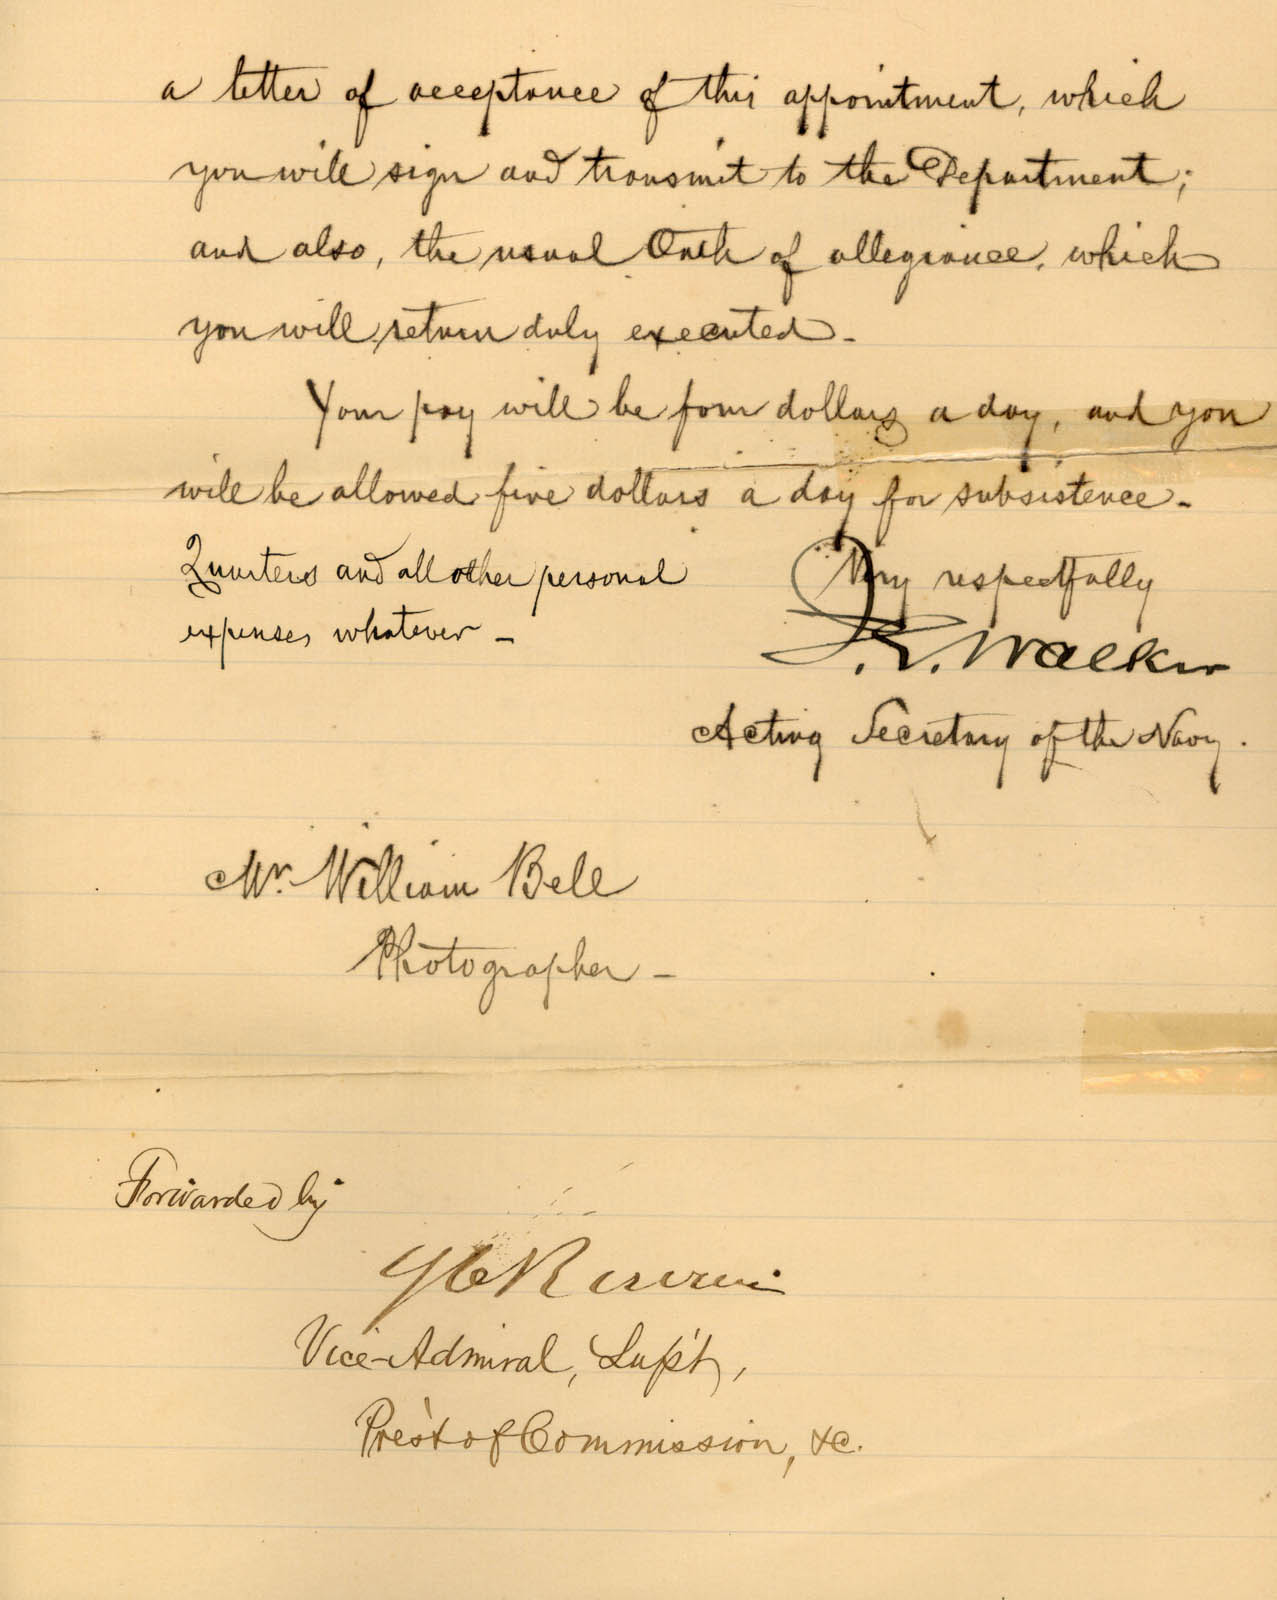 a letter of acceptance of this appointment, which
you will sign and transmit to the Department;
and also, the usual Oath of allegiance, which
you will return duly executed.
Your pay will be four dollars a day, and you
will be allowed five dollars a day for subsistence.
Quarters and all other personal
expenses whatever -
Very respectfully
Walker
Acting Secretary of the Navy.
Mr. William Bell
Photographer -
Forwarded by
Vice-Admiral, Supt,
Pres't of Commission, &c.